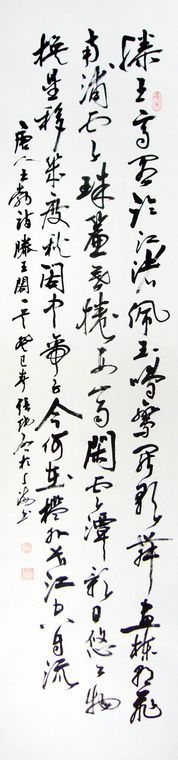 滕王高阁临江渚佩玉鸣鸾罢歌舞画栋朝飞
南浦云珠簾暮捲西山雨闲云潭影日悠悠物
换星移几度秋阁中帝子今何在槛外长江空自流
唐人王勃诗滕王阁一首癸巳年张于上海